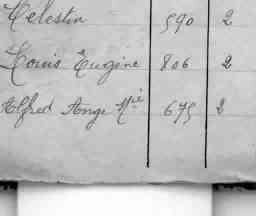 Celestin 590 2
Louis Eugène 806 2
Alfred Ange Mie 675 2